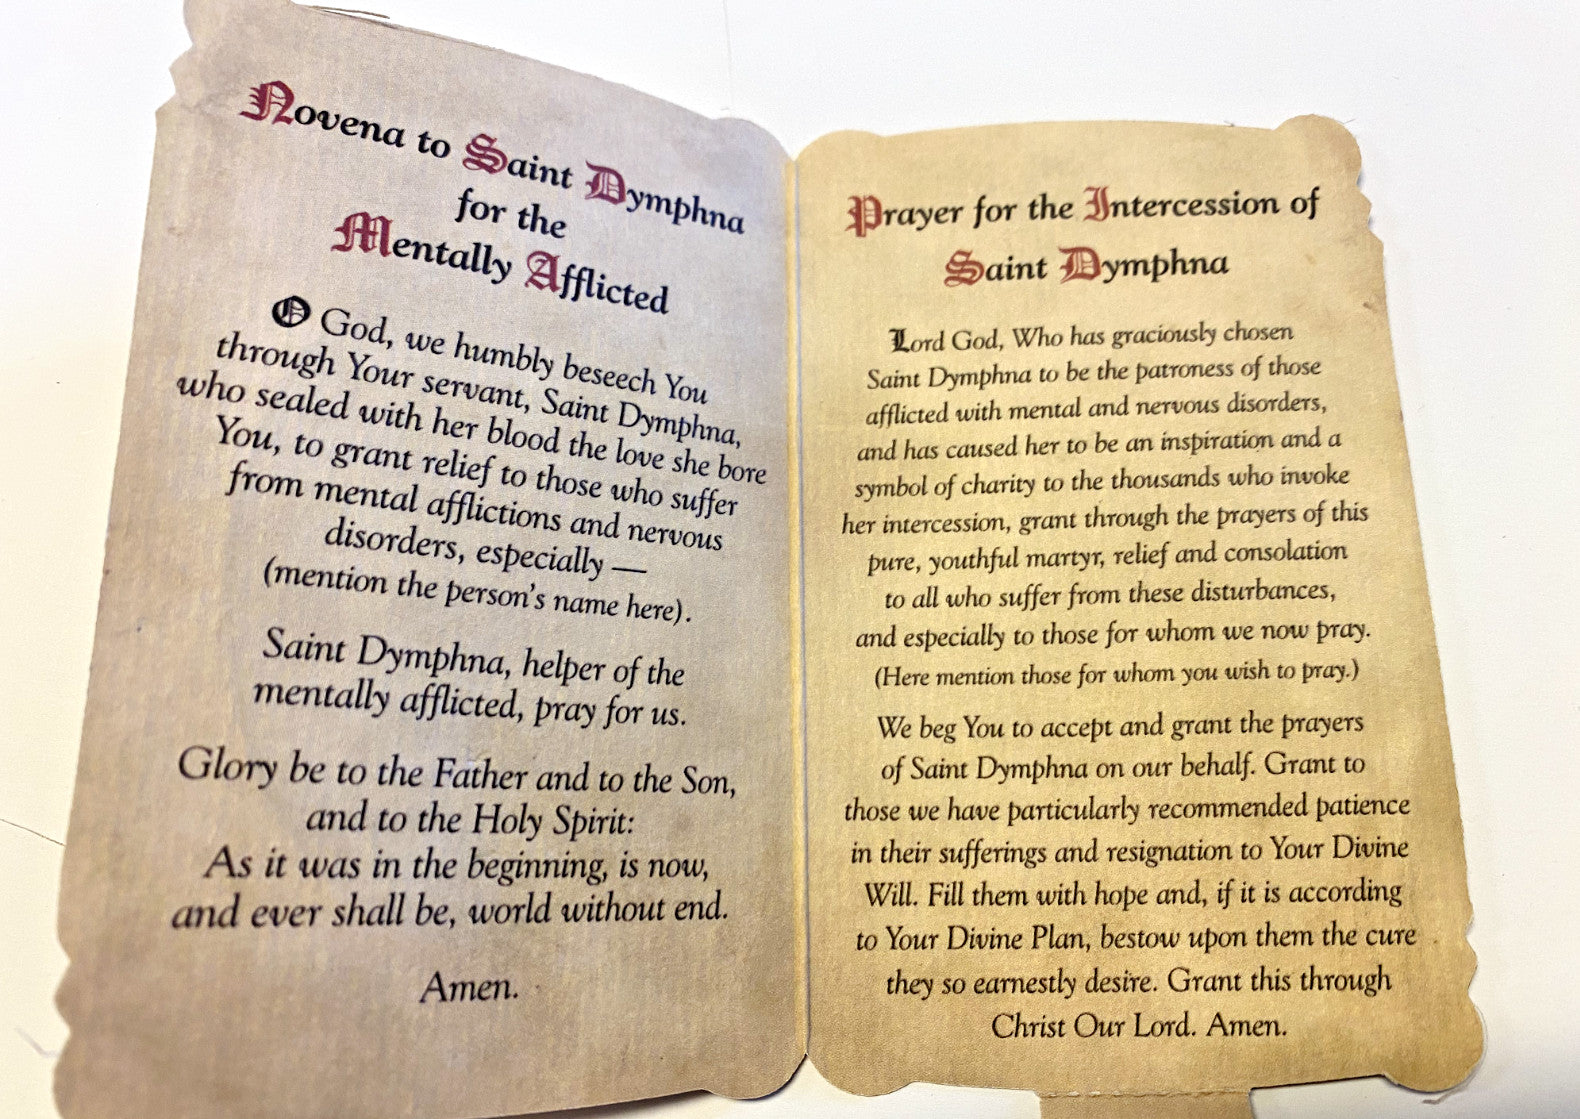 Novena to Saint Dymphna
for the
Mentally Afflicted
O God, we humbly beseech You
through Your servant, Saint Dymphna,
who sealed with her blood the love she bore
You, to grant relief to those who suffer
from mental afflictions and nervous
disorders, especially —
(mention the person's name here).
Saint Dymphna, helper of the
mentally afflicted, pray for us.
Glory be to the Father and to the Son,
and to the Holy Spirit:
As it was in the beginning, is now,
and ever shall be, world without end.
Amen.
Prayer for the Intercession of
Saint Dymphna
Lord God, Who has graciously chosen
Saint Dymphna to be the patroness of those
afflicted with mental and nervous disorders,
and has caused her to be an inspiration and a
symbol of charity to the thousands who invoke
her intercession, grant through the prayers of this
pure, youthful martyr, relief and consolation
to all who suffer from these disturbances,
and especially to those for whom we now pray.
(Here mention those for whom you wish to pray.)
We beg You to accept and grant the prayers
of Saint Dymphna on our behalf. Grant to
those we have particularly recommended patience
in their sufferings and resignation to Your Divine
Will. Fill them with hope and, if it is according
to Your Divine Plan, bestow upon them the cure
they so earnestly desire. Grant this through
Christ Our Lord. Amen.